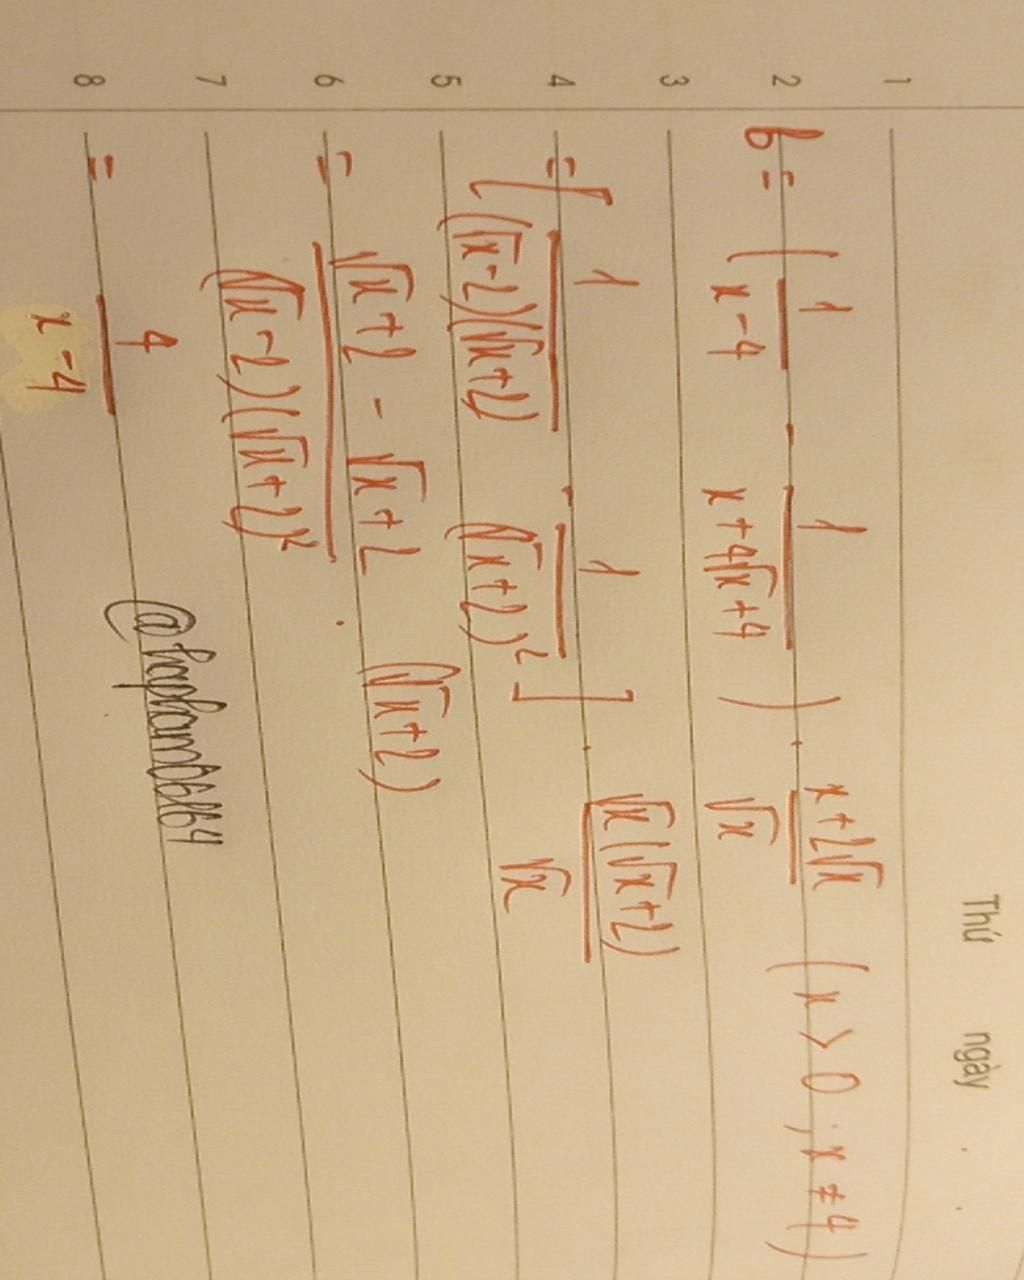 Thứ ngày .
1
2 B = ( 1/(x-4) - 1/(x+4√x+4) ) . (x+2√x)/√x (x > 0 ; x ≠ 4)
3
4 = [ 1/((√x-2)(√x+2)) - 1/(√x+2)² ] . √x(√x+2)/√x
5
6 = (√x+2 - √x+2)/((√x-2)(√x+2)²) . (√x+2)
7
8 = 4/(x-4)
@hapham06164